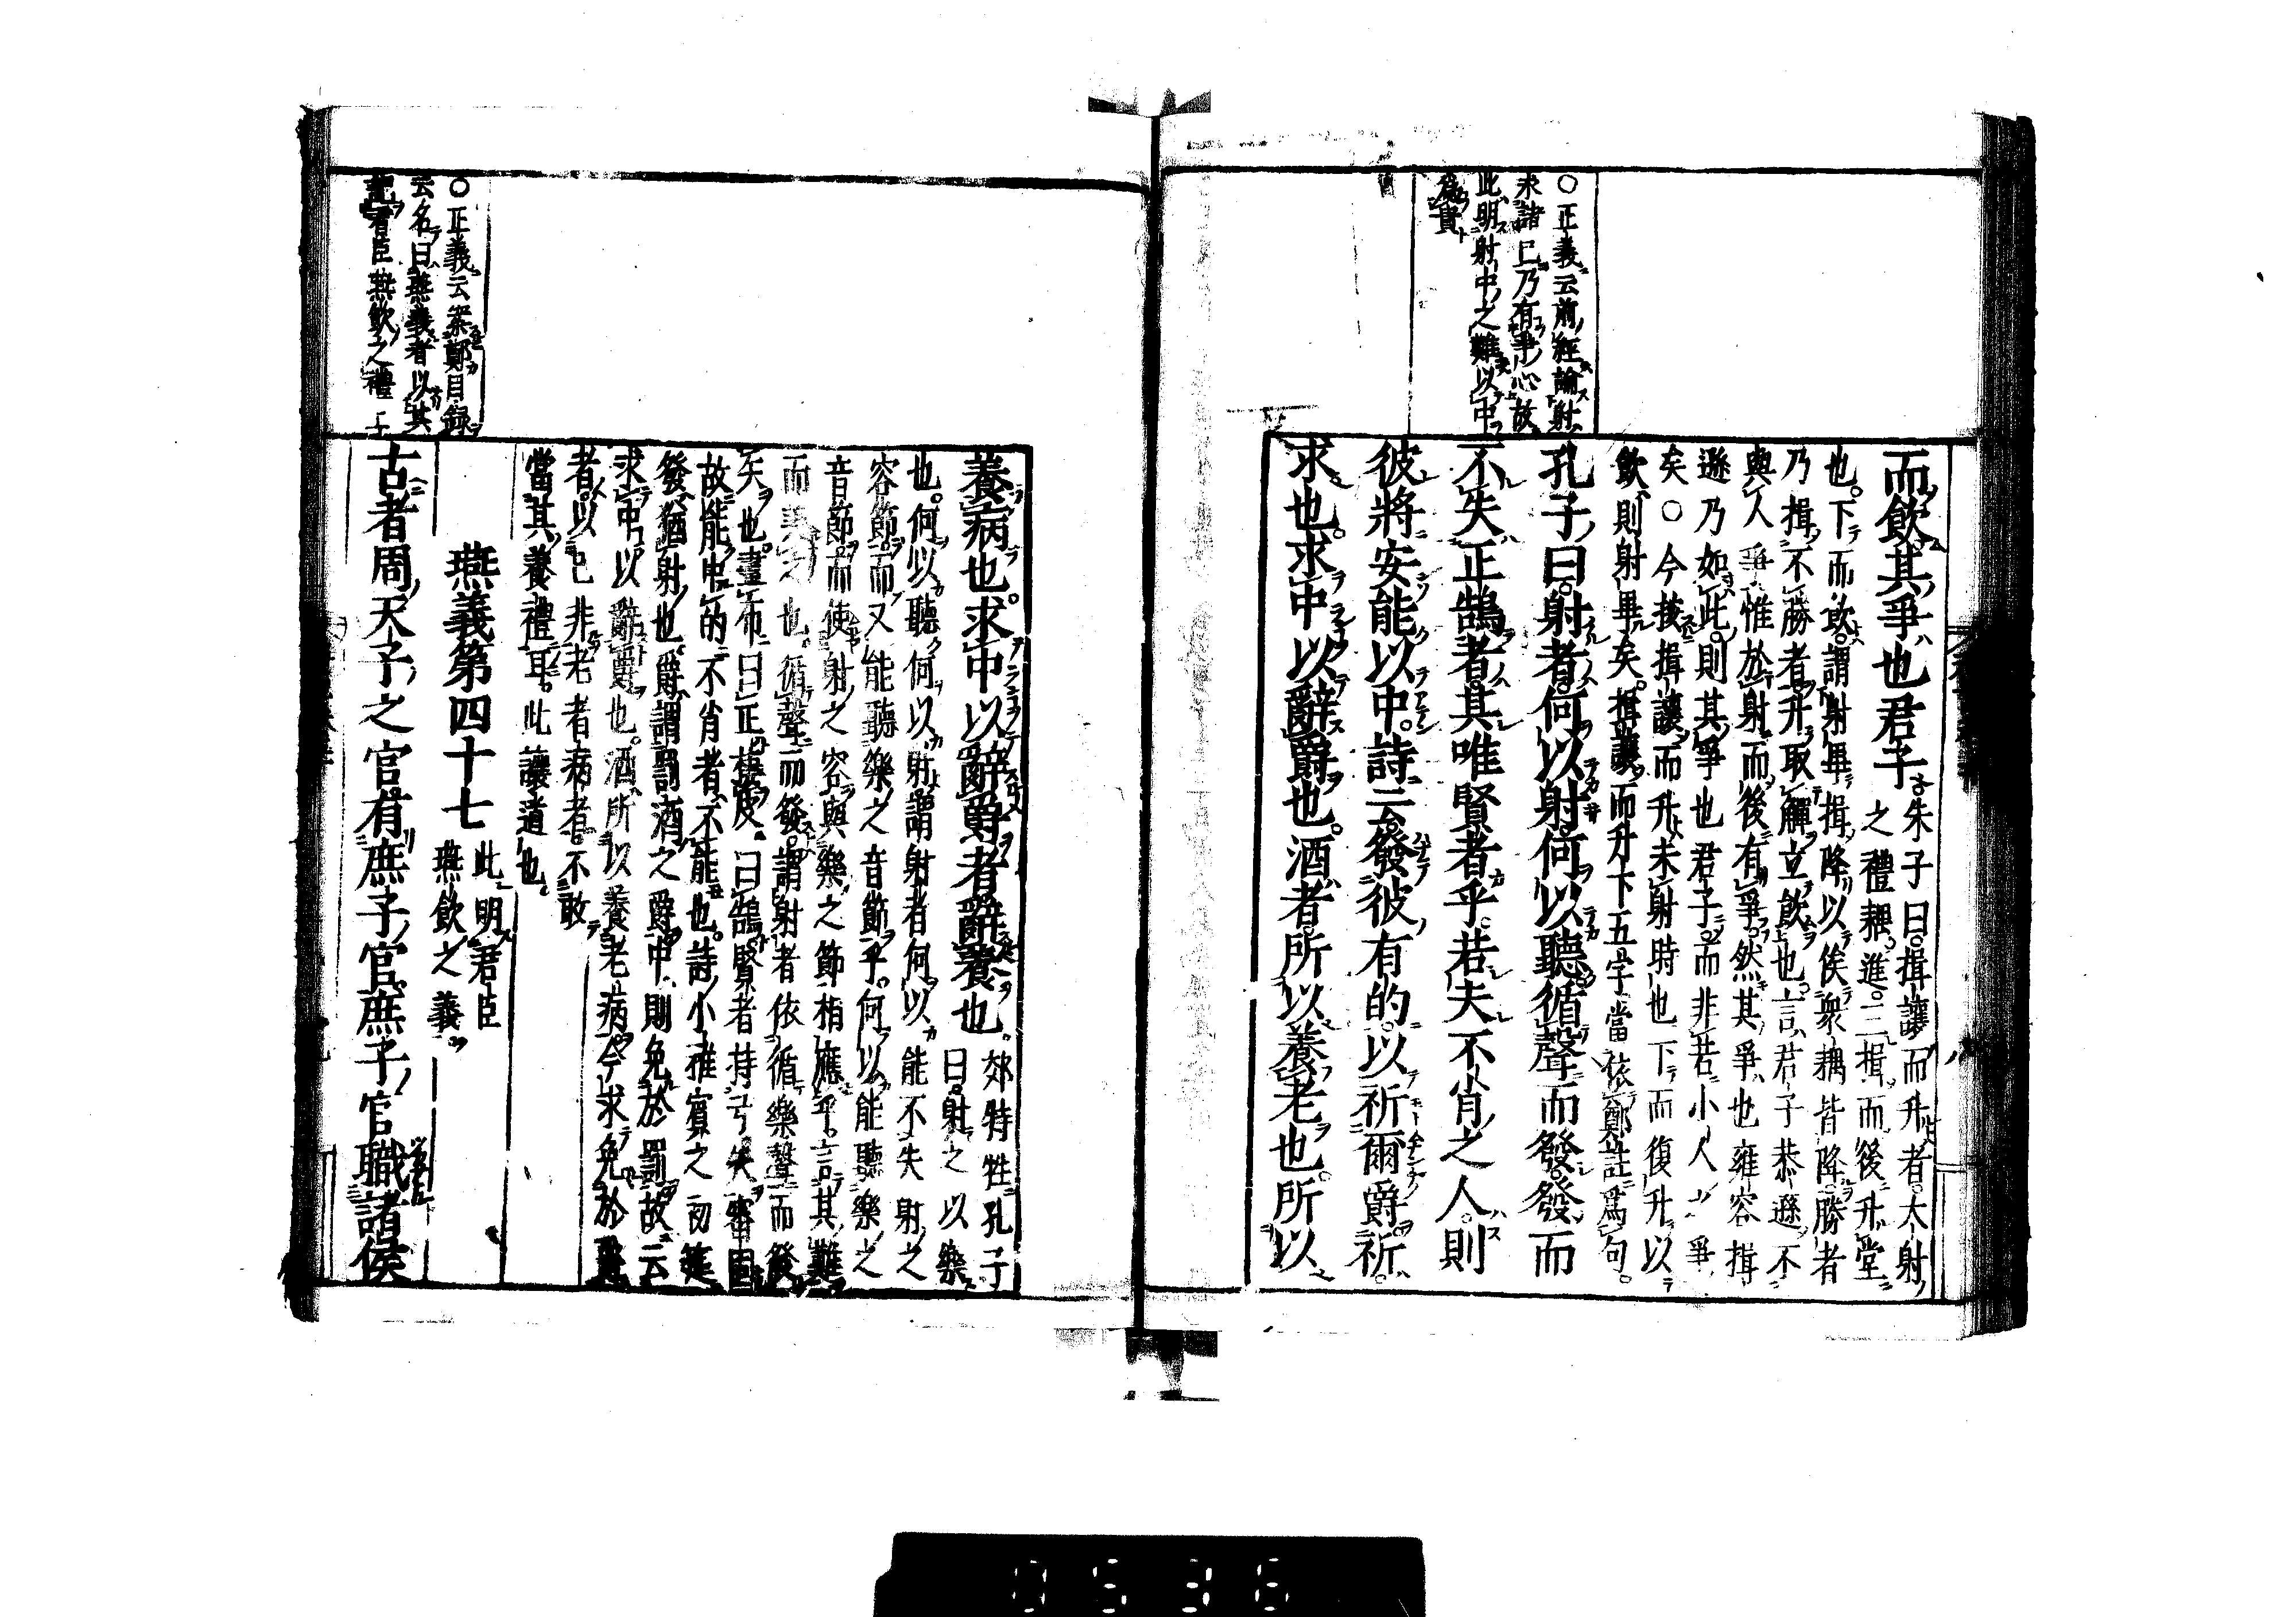 〇正義云前經論射
求諸已乃有爭心故
此明射中之難以中
爲貴
而飲其爭也君子
朱子曰揖讓而升者大射
之禮耦進三揖而後升堂
也下而飲謂射畢揖降以俟衆耦皆降勝者
乃揖不勝者升取觶立飲也言君子恭遜不
與人爭惟於射而後有爭然其爭也雍容揖
遜乃如此則其爭也君子而非若小人之爭
矣〇今按揖讓而升未射時也下而復升以
飲則射畢矣揖讓而升下五字當依鄭註爲句
孔子曰射者何以射何以聽循聲而發發而
不失正鵠者其唯賢者乎若夫不肖之人則
彼將安能以中詩云發彼有的以祈爾爵祈
求也求中以辭爵也酒者所以養老也所以
〇正義云案鄭目録
云名曰燕義者以其
記君臣燕飲之禮
養病也求中以辭爵者辭養也
郊特牲孔子
曰射之以樂
也何以聽何以射謂射者何以能不失射之
容節而又能聽樂之音節乎何以能聽樂之
音節而使射之容與樂之節相應乎言其難
而美之也循聲而發謂射者依循樂聲而發
矢也畫布曰正棲皮曰鵠賢者持弓矢審固
故能中的不肖者不能也詩小雅賓之初筵
發猶射也爵謂罰酒之爵中則免於罰故云
求中以辭爵也酒所以養老病今求免於爵
者以已非老者病者不敢
當其養禮耳此讓道也
燕義第四十七
此明君臣
燕飲之義
古者周天子之官有庶子官庶子官職諸侯